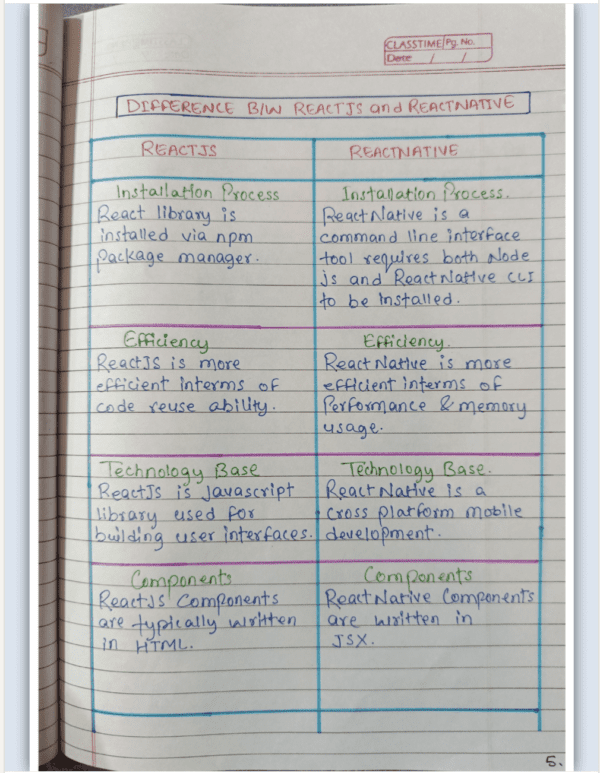 CLASSTIME Pg. No.
Date / /
DIFFERENCE B/W REACTJS and REACTNATIVE
REACTJS
Installation Process
React library is
installed via npm
package manager.
Efficiency
ReactJS is more
efficient interms of
code reuse ability.
Technology Base
ReactJs is javascript
library used for
building user interfaces.
Components
ReactJS components
are typically written
in HTML.
REACTNATIVE
Installation Process.
React Native is a
command line interface
tool requires both Node
js and React Native CLI
to be installed.
Efficiency.
React Native is more
efficient interms of
Performance & memory
usage.
Technology Base.
React Native is a
cross platform mobile
development.
Components
React Native Components
are written in
JSX.
5.